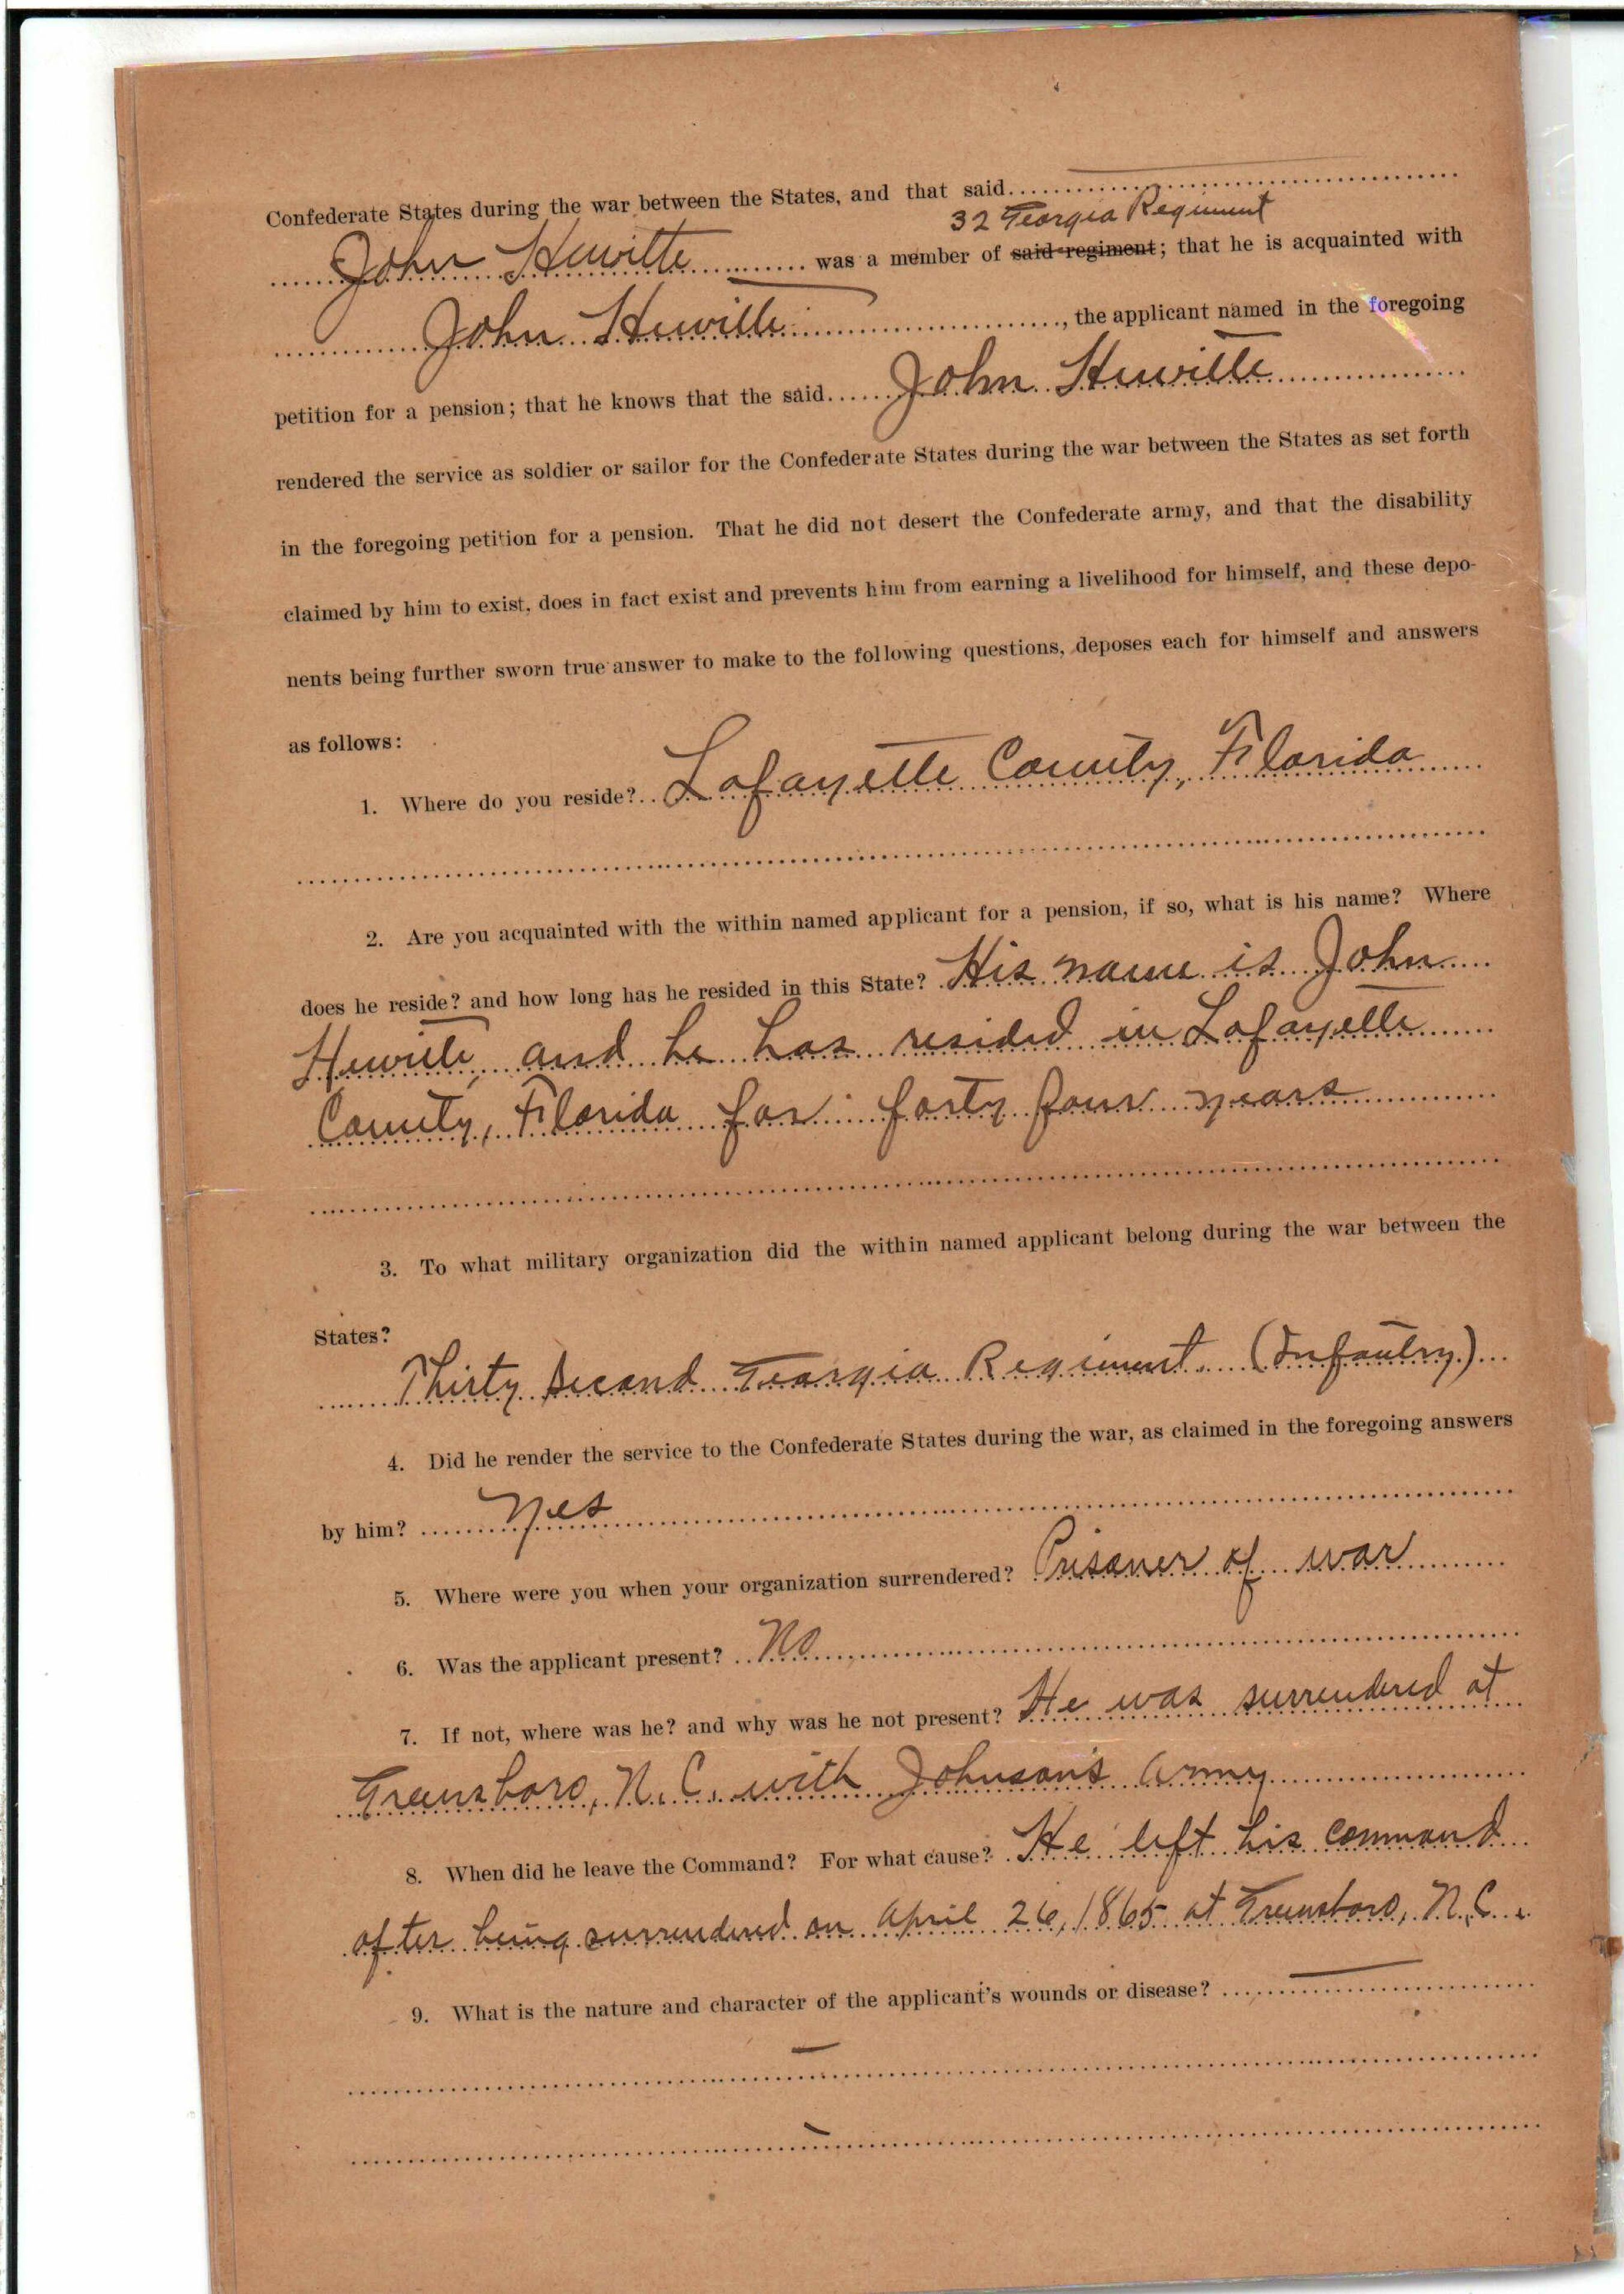 Confederate States during the war between the States, and that said
32 Georgia Regiment
John Hewitte was a member of said regiment; that he is acquainted with
John Hewitte, the applicant named in the foregoing
petition for a pension; that he knows that the said John Hewitte
rendered the service as soldier or sailor for the Confederate States during the war between the States as set forth
in the foregoing petition for a pension. That he did not desert the Confederate army, and that the disability
claimed by him to exist, does in fact exist and prevents him from earning a livelihood for himself, and these depo-
nents being further sworn true answer to make to the following questions, deposes each for himself and answers
as follows:
1. Where do you reside? Lafayette County, Florida
2. Are you acquainted with the within named applicant for a pension, if so, what is his name? Where
does he reside? and how long has he resided in this State? His name is John
Hewitte, and he has resided in Lafayette
County, Florida for forty four years
3. To what military organization did the within named applicant belong during the war between the
States?
Thirty Second Georgia Regiment. (Infantry)
4. Did he render the service to the Confederate States during the war, as claimed in the foregoing answers
by him? Yes
5. Where were you when your organization surrendered? Prisoner of war
6. Was the applicant present? No
7. If not, where was he? and why was he not present? He was surrendered at
Greensboro, N. C. with Johnson's Army
8. When did he leave the Command? For what cause? He left his command
after being surrendered on April 26, 1865 at Greensboro, N. C.
9. What is the nature and character of the applicant's wounds or disease?